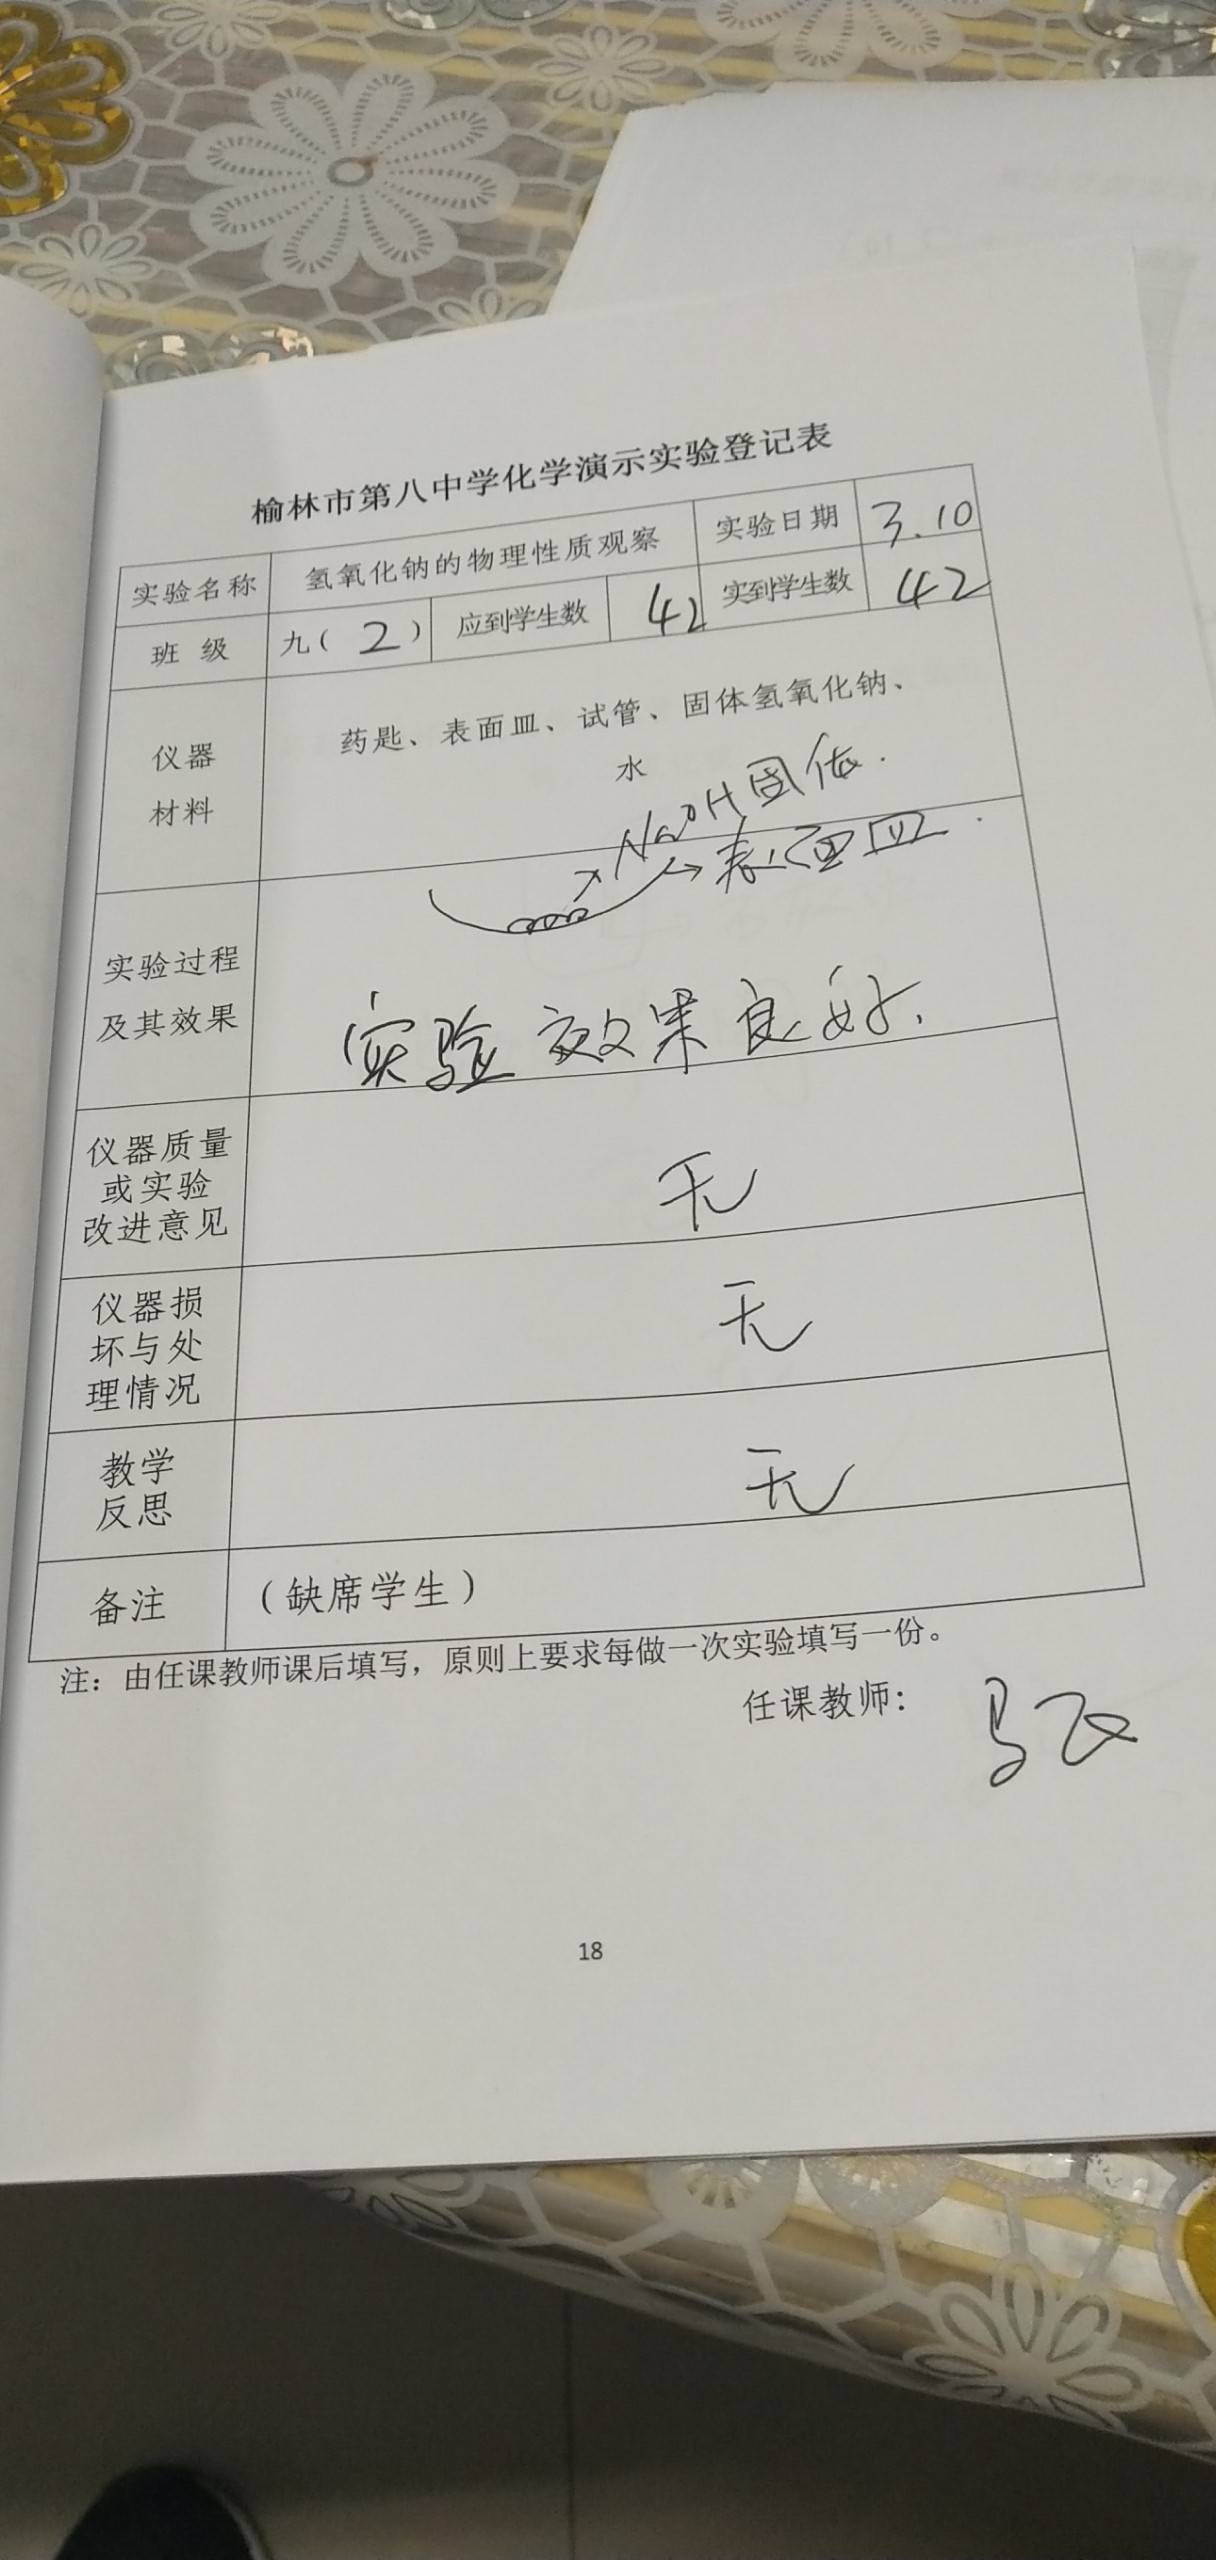 榆林市第八中学化学演示实验登记表
实验名称 氢氧化钠的物理性质观察 实验日期 3.10
班 级 九( 2 ) 应到学生数 42 实到学生数 42
仪器
材料
药匙、表面皿、试管、固体氢氧化钠、
水
NaOH固体.
表面皿.
实验过程
及其效果
实验效果良好.
仪器质量
或实验
改进意见
无
仪器损
坏与处
理情况
无
教学
反思
无
备注 (缺席学生)
注：由任课教师课后填写，原则上要求每做一次实验填写一份。
任课教师： 马
18